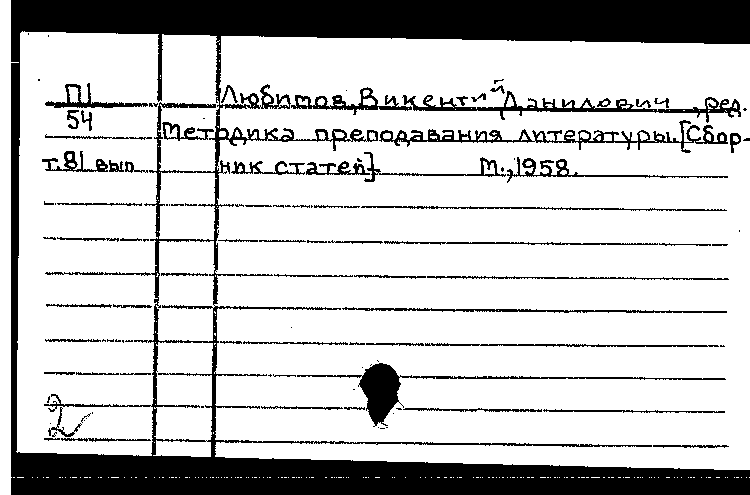 П1 Любимов, Викентий Данилович, ред.
54 Методика преподавания литературы. [Сбор-
т.81 вып ник статей] М., 1958.
2